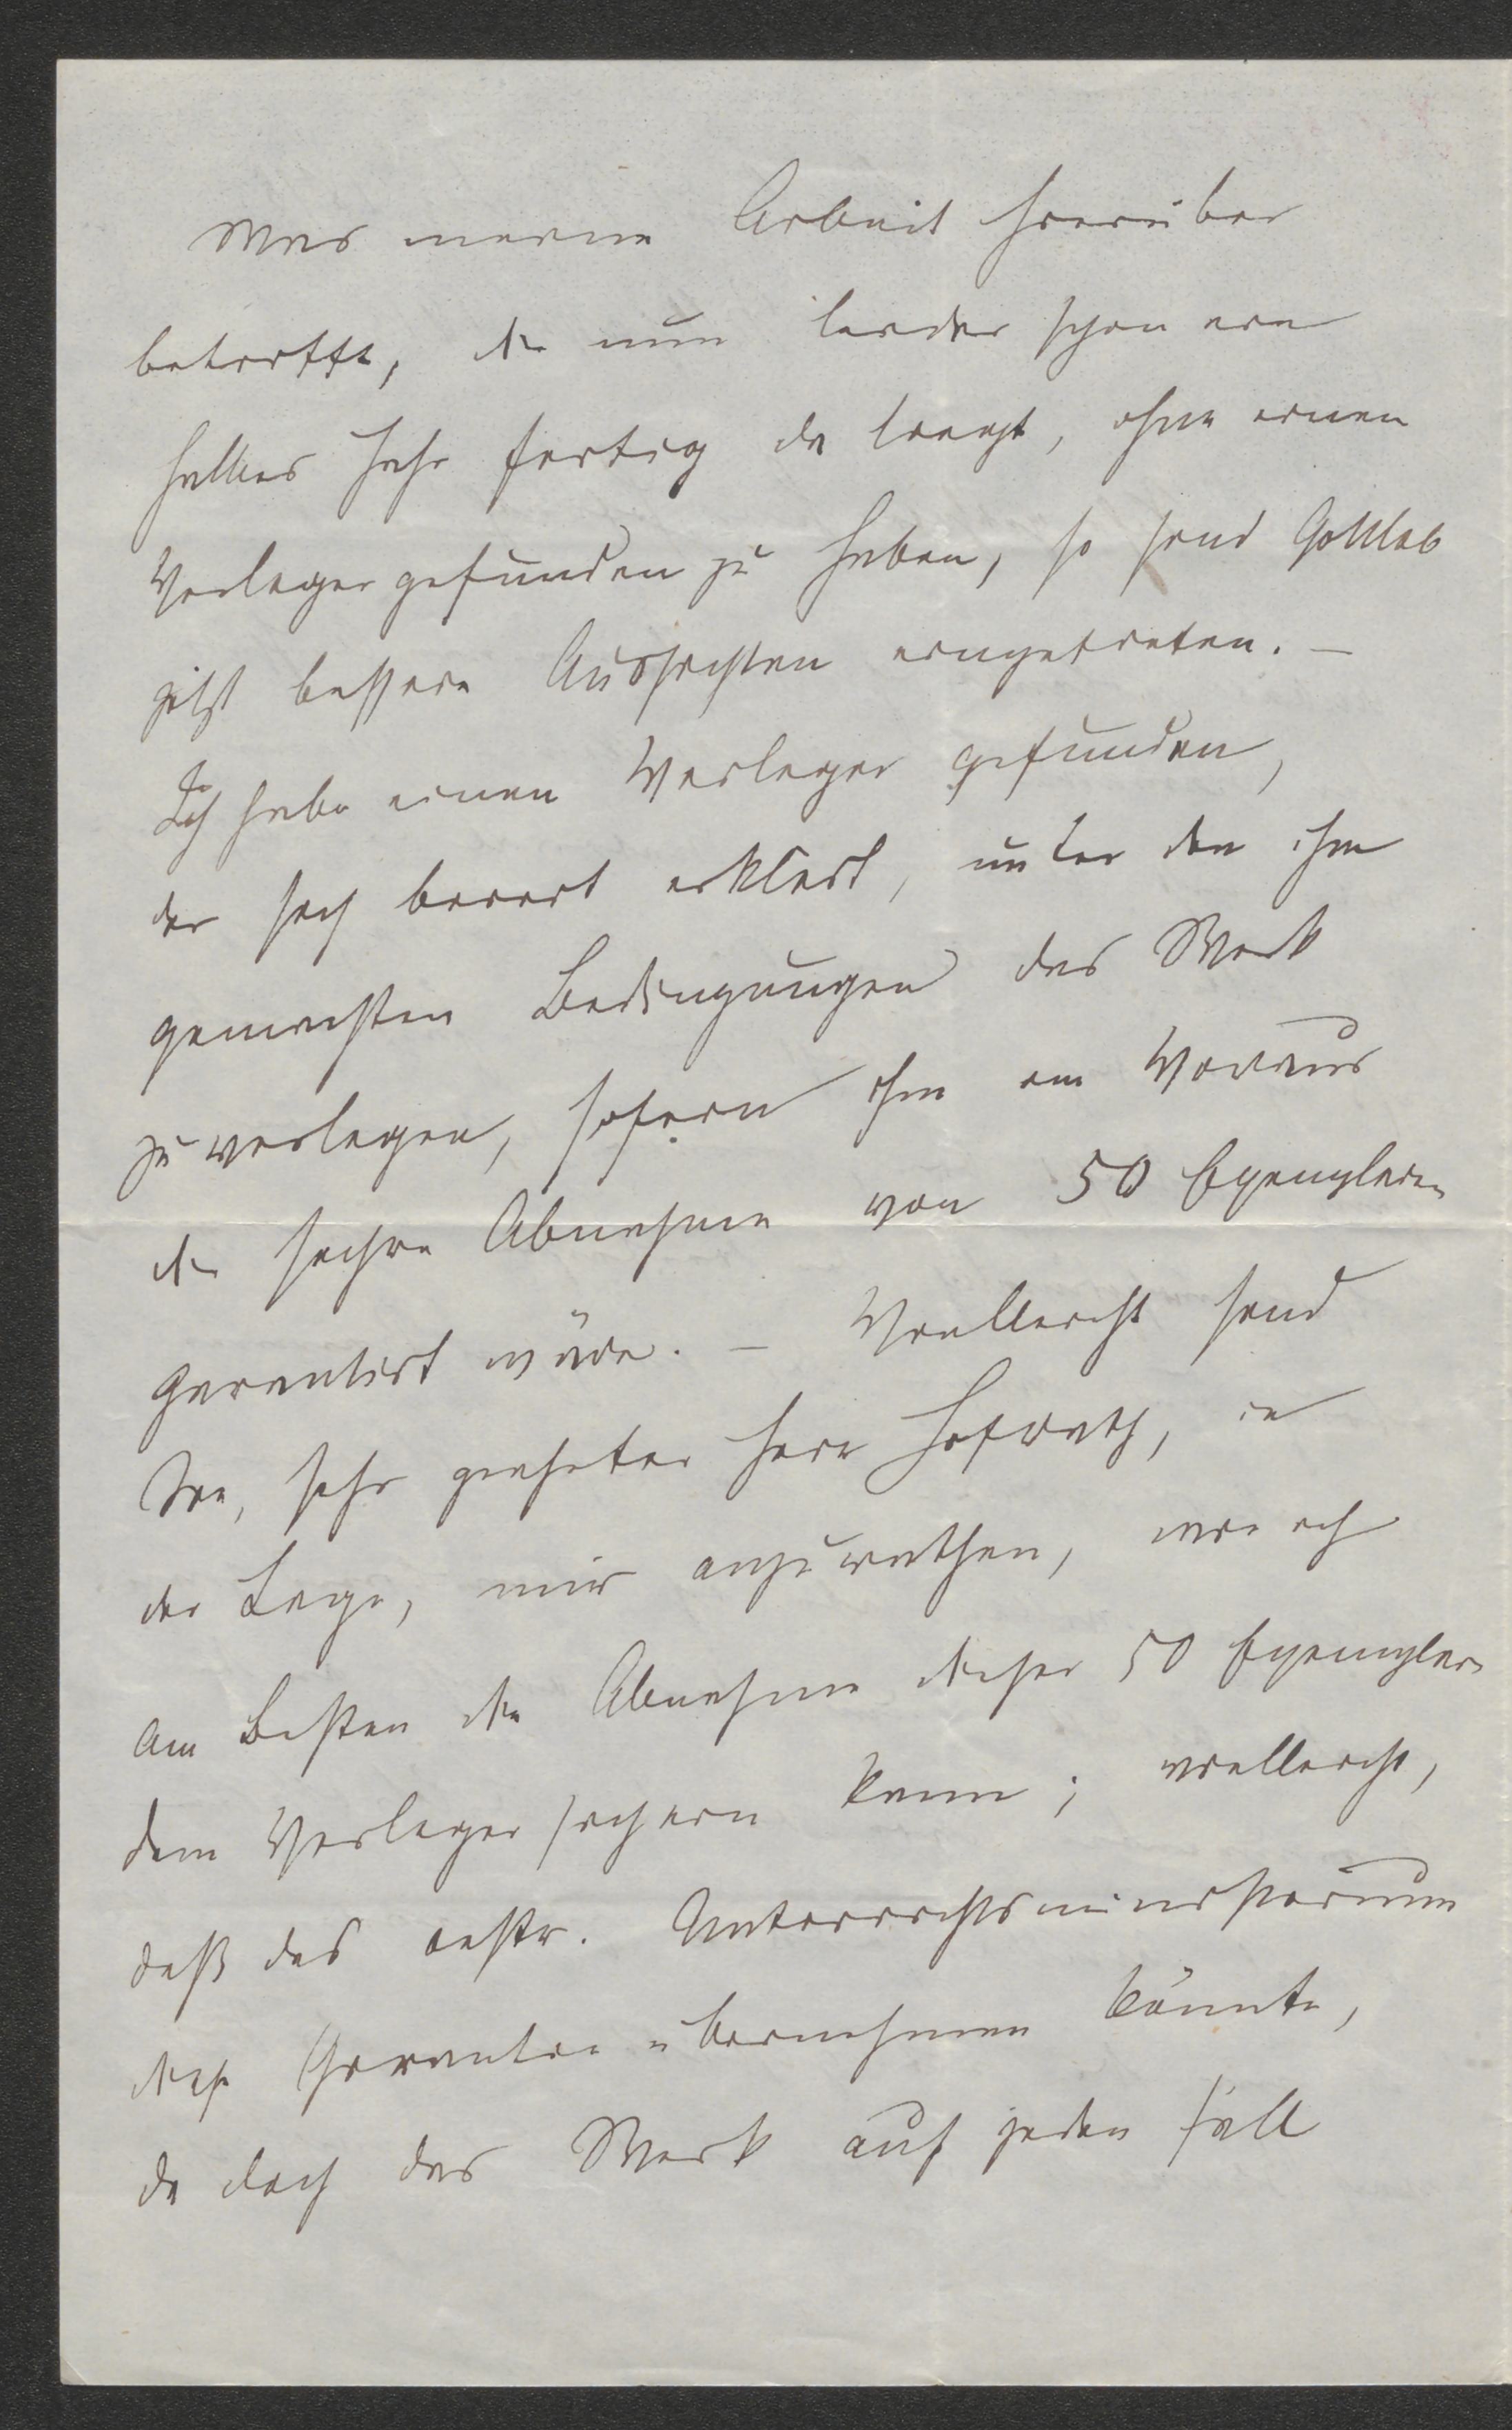 Was meine Arbeit hierüber
betrifft, die nun leider schon ein
halbes Jahr fertig da liegt, ohne einen
Verleger gefunden zu haben, so sind Gottlob
jetzt bessere Aussichten eingetreten. –
Ich habe einen Verleger gefunden,
der sich bereit erklärt, unter den ihm
gemachten Bedingungen das Werk
zu verlegen, sofern ihm im Voraus
die sichere Abnahme von 50 Exemplaren
garantirt würde. – Vielleicht sind
Sie, sehr geehrter Herr Hofrath, in
der Lage, mir anzurathen, wie ich
am Besten die Abnahme dieser 50 Exemplare
dem Verleger sichern kann; vielleicht,
daß das oestr. Unterrichtsministerium
diese Garantie übernehmen könnte,
da doch das Werk auf jeden Fall